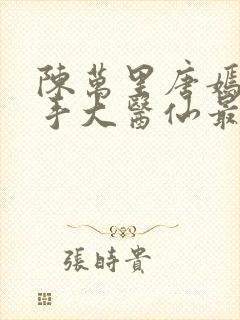 陳萬里唐嫣
手大醫仙最
張時貴